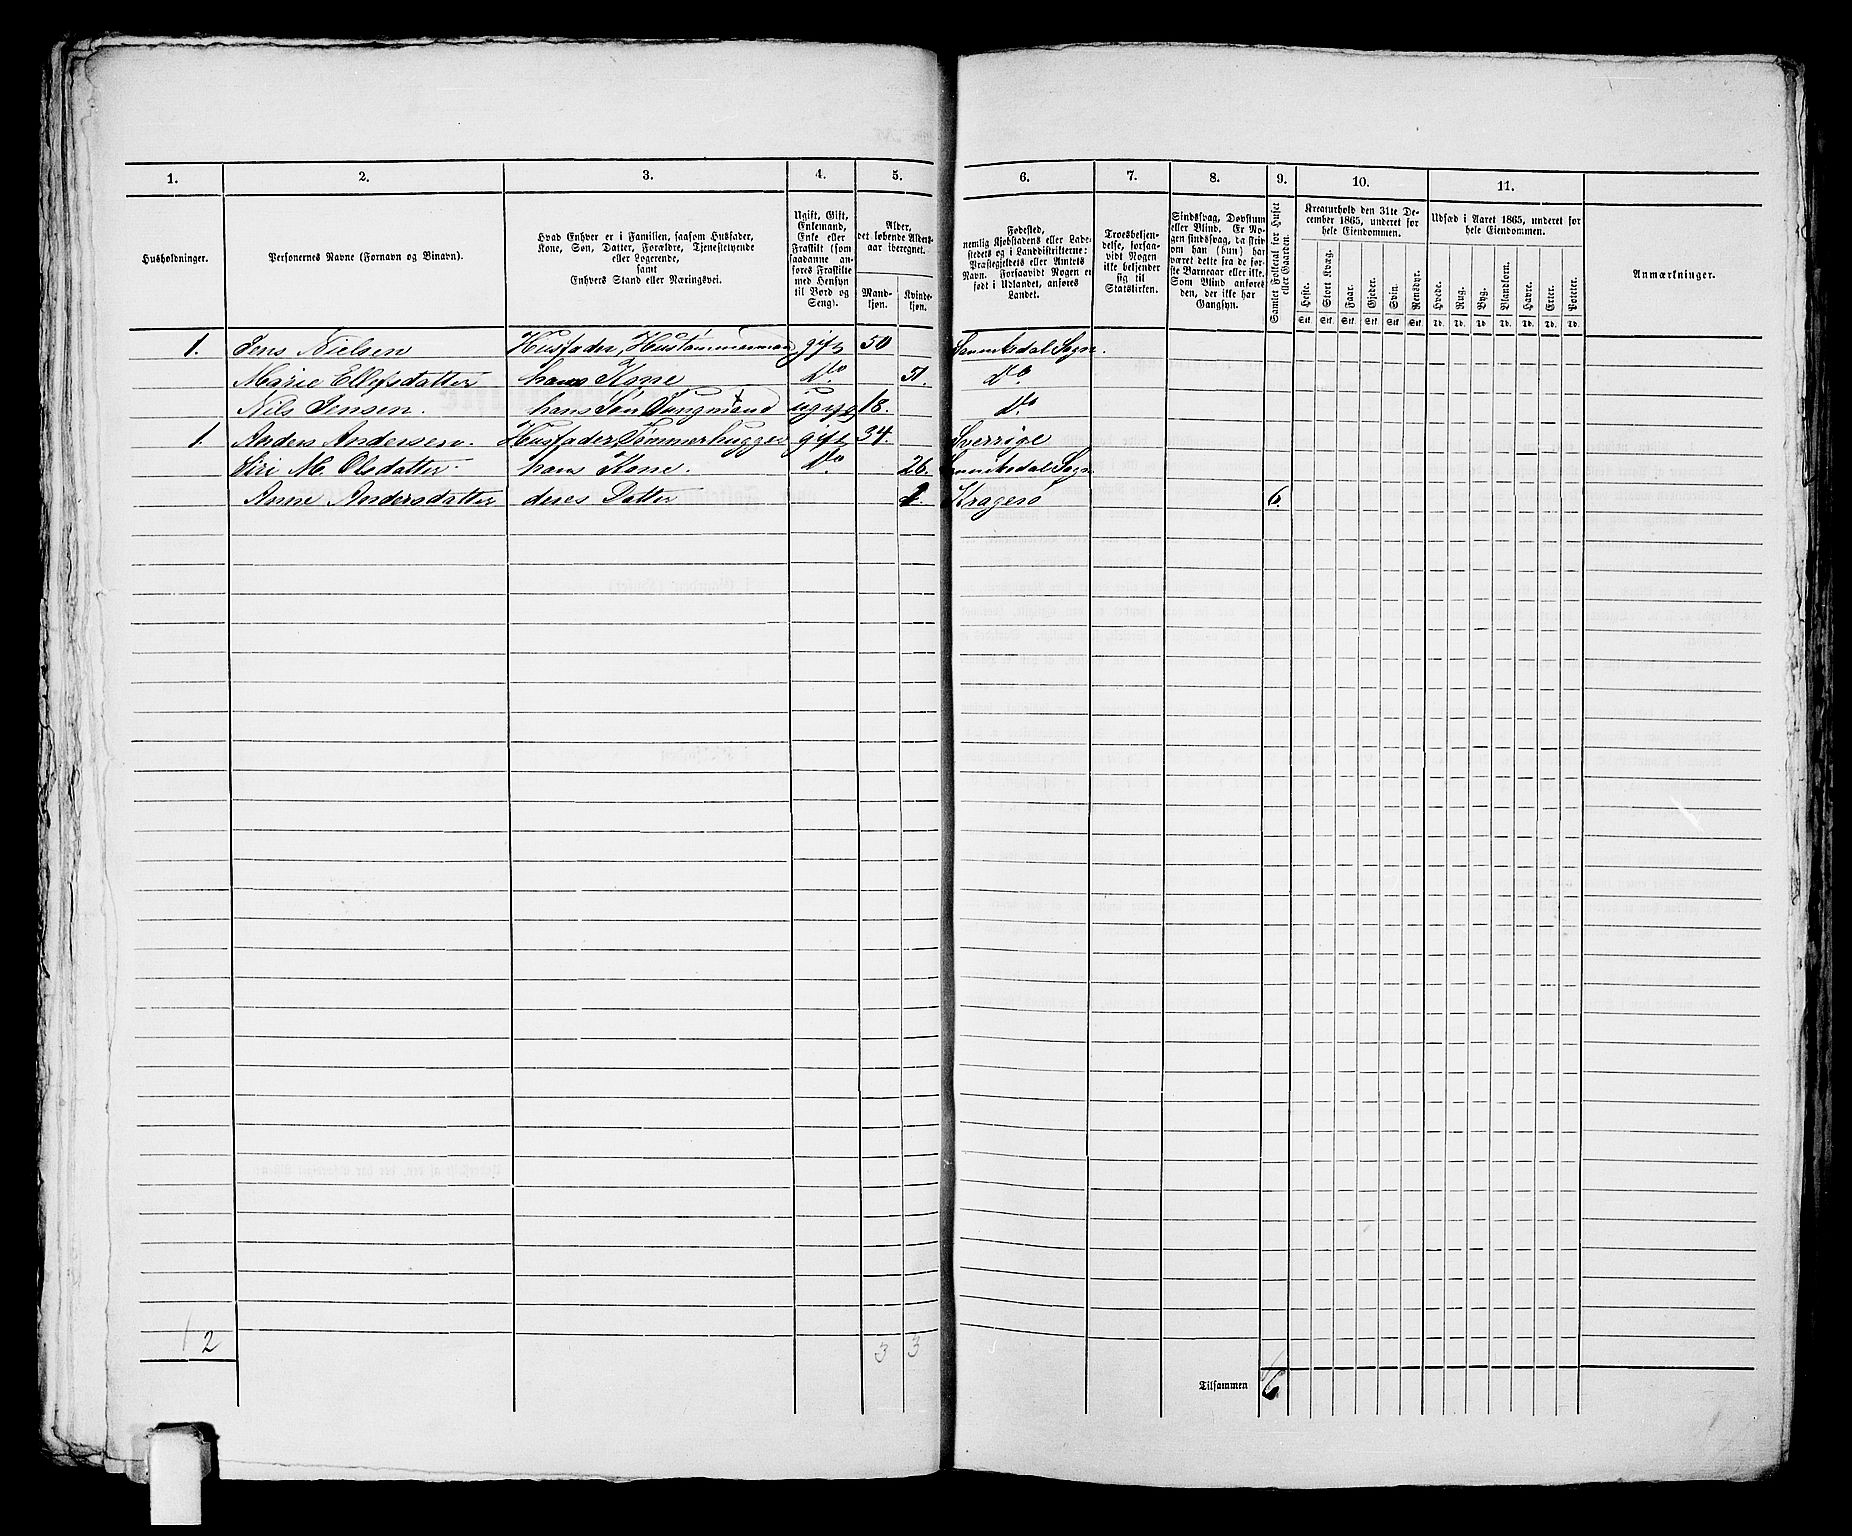 1. 2. 3. 4. 5. 6. 7. 8. 9. 10. 11.
Husholdninger.
Personernes Navne (Fornavn og Binavn).
Hvad Enhver er i Familien, saasom Husfader,
Kone, Søn, Datter, Forældre, Tjenestetyende
eller Logerende,
samt
Enhvers Stand eller Næringsvei.
Ugift, Gift,
Enkemand,
Enke eller
Fraskilt (som
saadanne an-
føres Fraskilte
med Hensyn
til Bord og
Seng).
Alder,
det løbende Alders-
aar iberegnet.
Mand-
kjøn.
Kvinde-
kjøn.
Fødested,
nemlig Kjøbstadens eller Lade-
stedets eller i Landdistrikterne:
Præstegjeldets eller Amtets
Navn. Forsaavidt Nogen er
født i Udlandet, anføres
Landet.
Troesbekjen-
delse, forsaa-
vidt Nogen
ikke bekjender
sig til
Statskirken.
Sindssvag, Døvstum
eller Blind. Er No-
gen sindssvag, da skriv
om han (hun) har
været dette fra de før-
ste Barneaar eller ikke.
Som Blind anføres
den, der ikke har
Gangsyn.
Samlet Folketal for Huset
eller Gaarden.
Kreaturhold den 31te De-
cember 1865, underet for
hele Eiendommen.
Heste. Stort Kvæg. Faar. Gjeder. Svin. Rensdyr.
Stk. Stk. Stk. Stk. Stk. Stk.
Udsæd i Aaret 1865, underet for
hele Eiendommen.
Hvede. Rug. Byg. Blandkorn. Havre. Erter. Poteter.
Td. Td. Td. Td. Td. Td. Td.
Anmærkninger.
1. Jens Nielsen Husfader, Hustømmermand gift 50 Sannikedal Sogn.
Marie Ellefsdatter hans Kone Do 51. Do
Nils Jensen. hans Søn Jungmand ugift 18. Do
1. Anders Andersen. Husfader, Tømmerhugger gift 34. Sverrige
Siri M. Olsdatter. hans Kone. Do 26. Sannikedal Sogn
Anne Andersdatter deres Datter 1. Kragerø 6.
2 3 3
Tilsammen 6